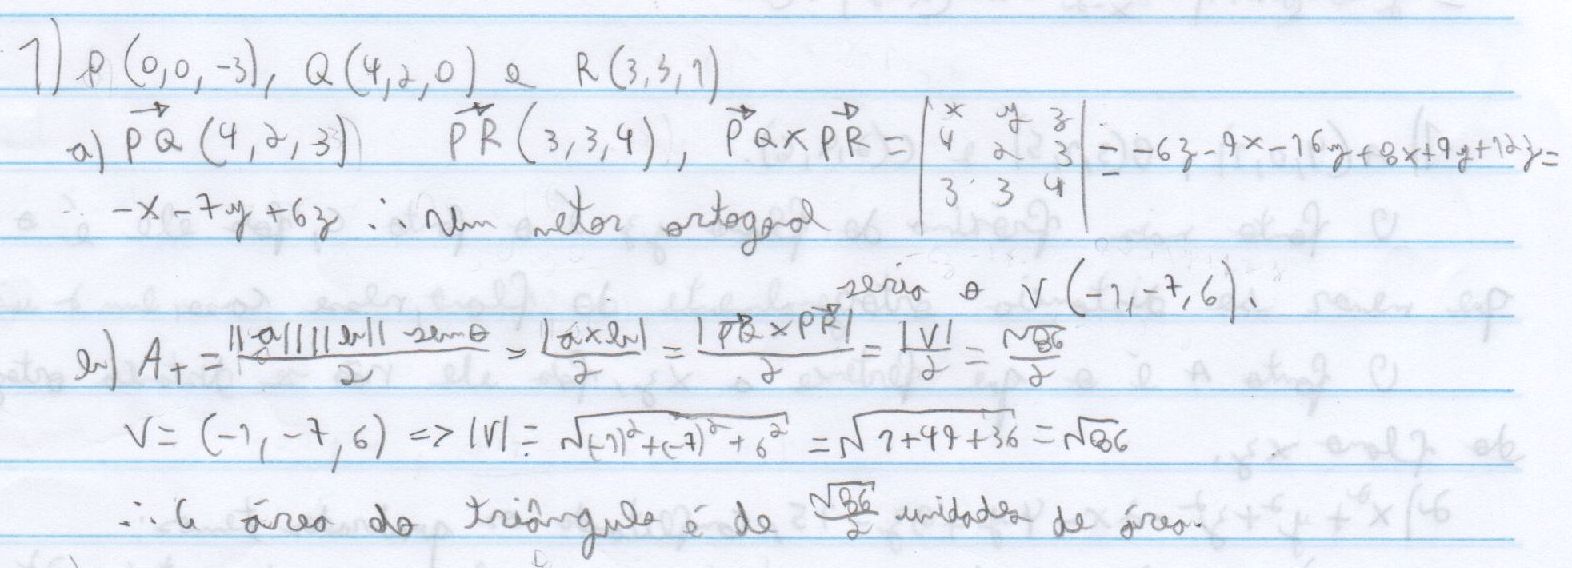 1) P(0,0,-3), Q(4,2,0) e R(3,3,1)
a) PQ→(4,2,3) PR→(3,3,4), PQ→ x PR→ = |x y z; 4 2 3; 3 3 4| = -6z-9x-16y+8x+9y+12z=
-x-7y+6z ∴ Um vetor ortogonal
seria o V(-1,-7,6).
b) A_T = ||a||||b|| senθ/2 = |axb|/2 = |PQ→ x PR→|/2 = |V|/2 = √86/2
V = (-1,-7,6) => |V| = √((-1)²+(-7)²+6²) = √(1+49+36) = √86
∴ a área do triângulo é de √86/2 unidades de área.